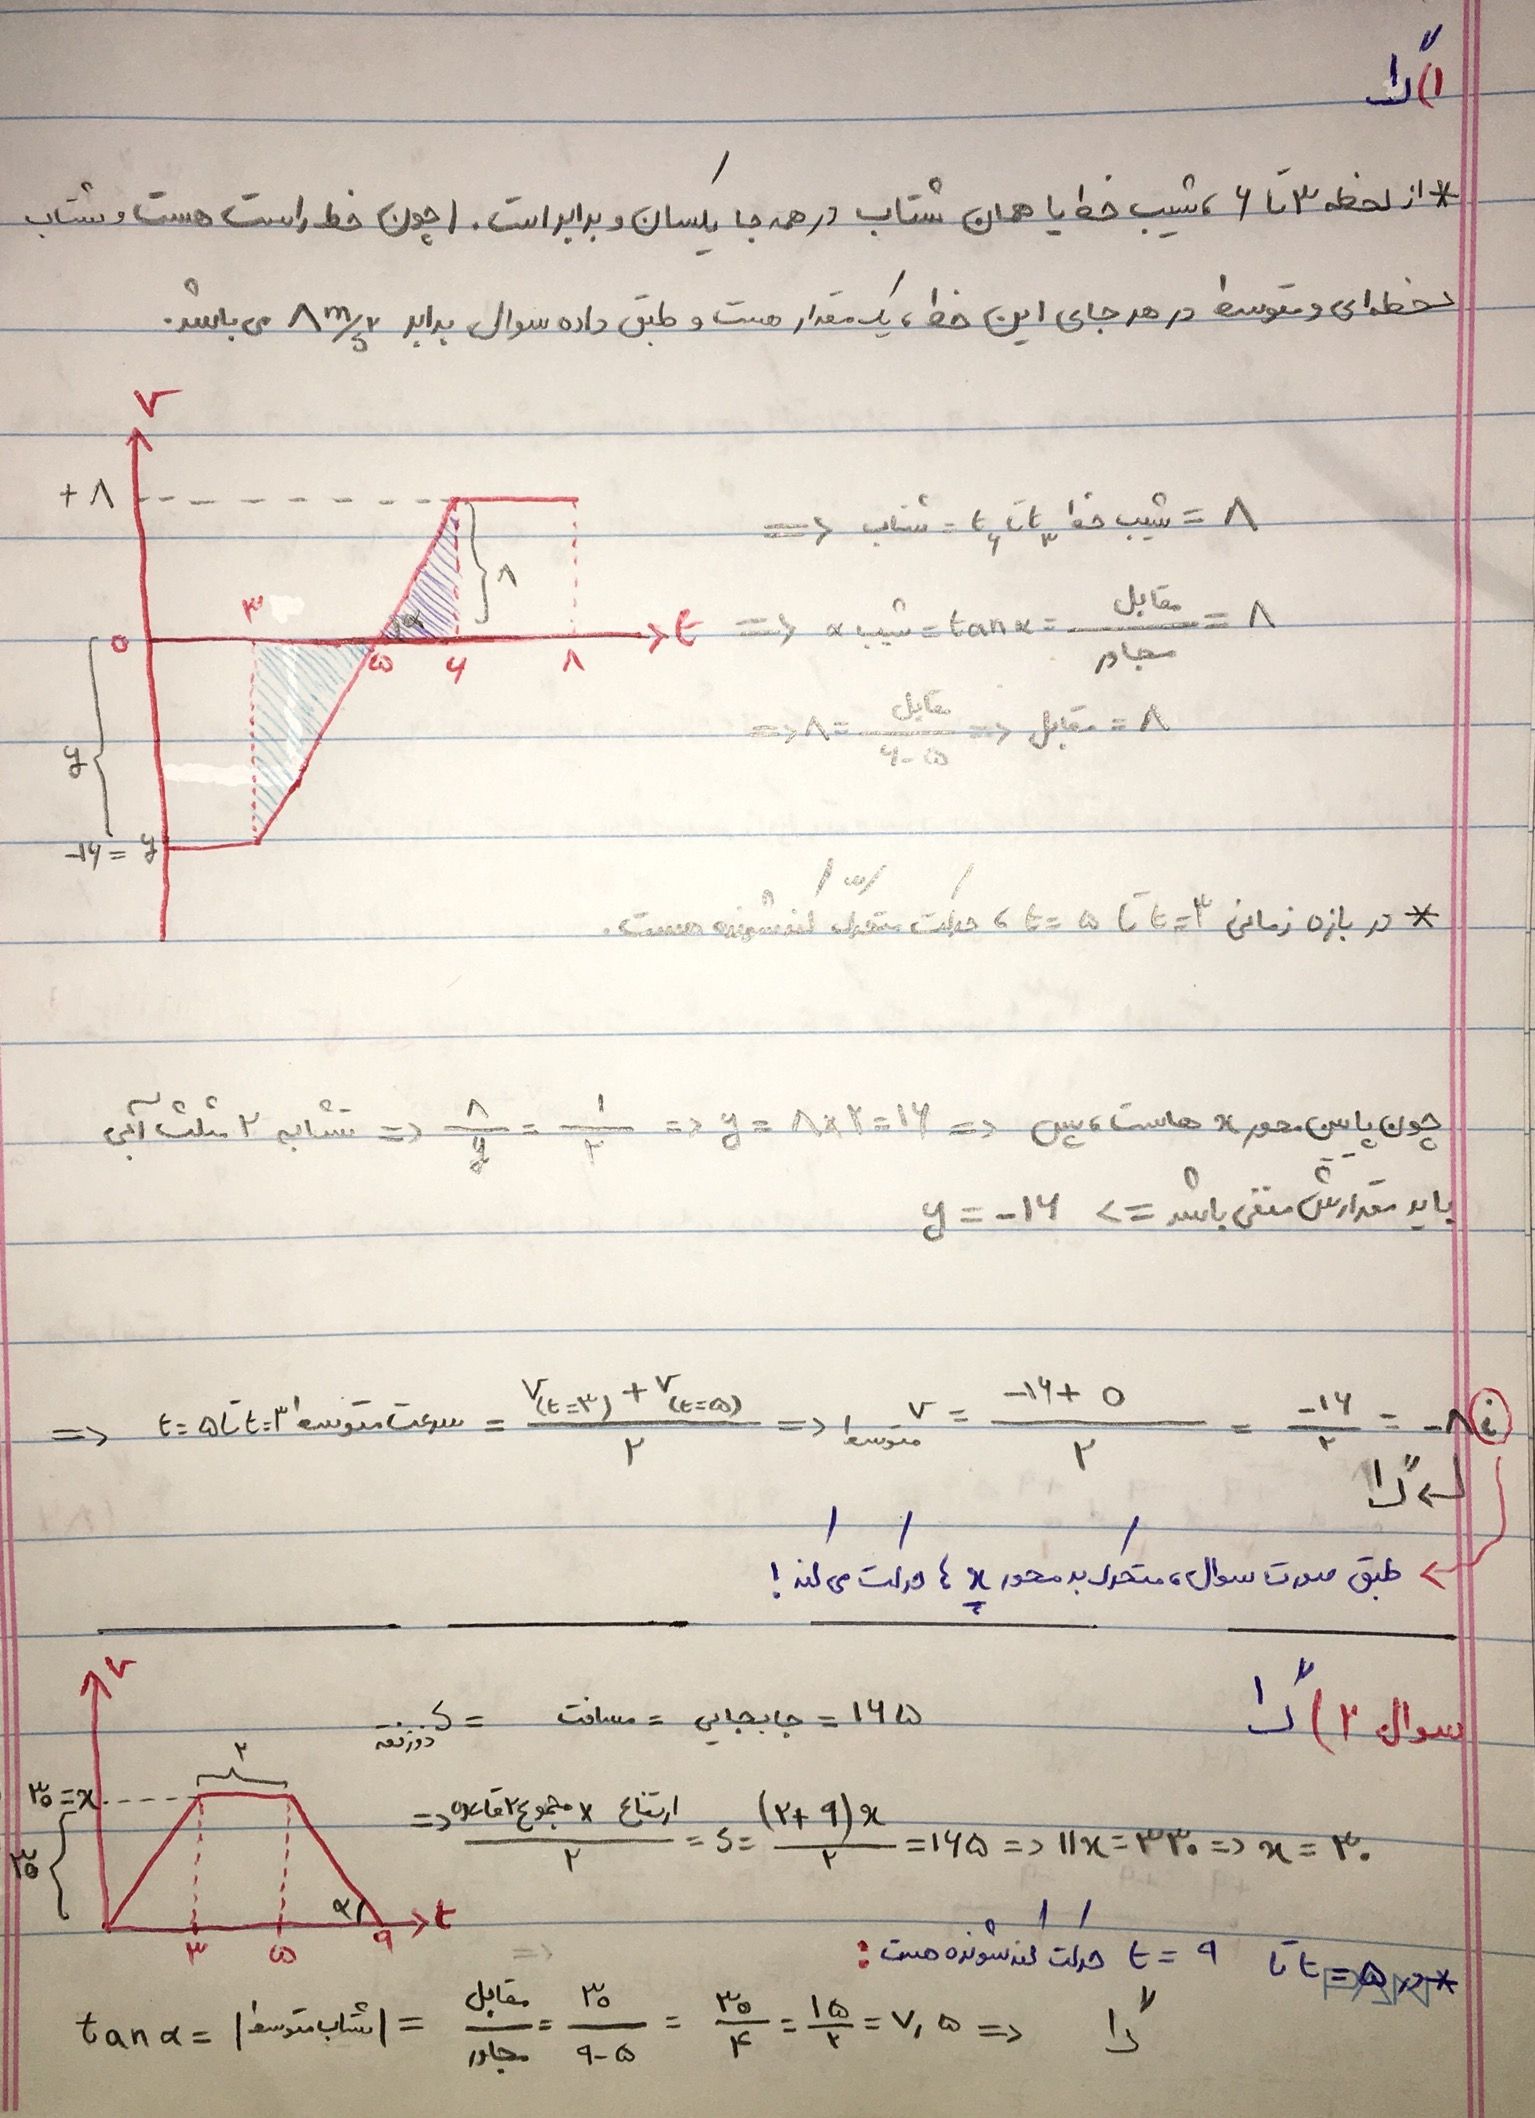 ۱) «۱»
* از لحظه ۳ تا ۶، شیب خط یا همان شتاب در همه جا یکسان و برابر است. (چون خط راست هست و شتاب
لحظه‌ای و متوسط در هر جای این خط، یک مقدار هست و طبق داده سوال برابر ۸ m/s۲ می باشد.
v
+۸
۸
۳
α
o
۵
۶
۸
t
y
-۱۶ = y
شیب خط t۳ تا t۶ = شتاب = ۸ =>
=> شیب α = tan α = مقابل / مجاور = ۸
=> ۸ = مقابل / ۶-۵ => مقابل = ۸
* در بازه زمانی t=۳ تا t=۵، حرکت متحرک کندشونده هست.
تشابه ۲ مثلث آبی => ۸/y = ۱/۲ => y = ۸×۲ = ۱۶ => چون پایین محور x هاست، پس
باید مقدارش منفی باشد => y = -۱۶
=> سرعت متوسط t=۳ تا t=۵ = V(t=۳) + V(t=۵) / ۲ => V متوسط = -۱۶ + ۰ / ۲ = -۱۶ / ۲ = -۸ i
طبق صورت سوال، متحرک بر محور x ها حرکت می کند!
سوال ۲)
S ذوزنقه = مسافت = جابجایی = ۱۶۵
v
۲
۳۰ = x
۳۰
α
۳
۵
۹
t
=> ارتفاع × مجموع ۲ قاعده / ۲ = S = (۲+۹)x / ۲ = ۱۶۵ => ۱۱x = ۳۳۰ => x = ۳۰
* در t=۵ تا t = ۹ حرکت کندشونده هست:
tan α = |شتاب متوسط| = مقابل / مجاور = ۳۰ / ۹-۵ = ۳۰ / ۴ = ۱۵ / ۲ = ۷,۵ =>